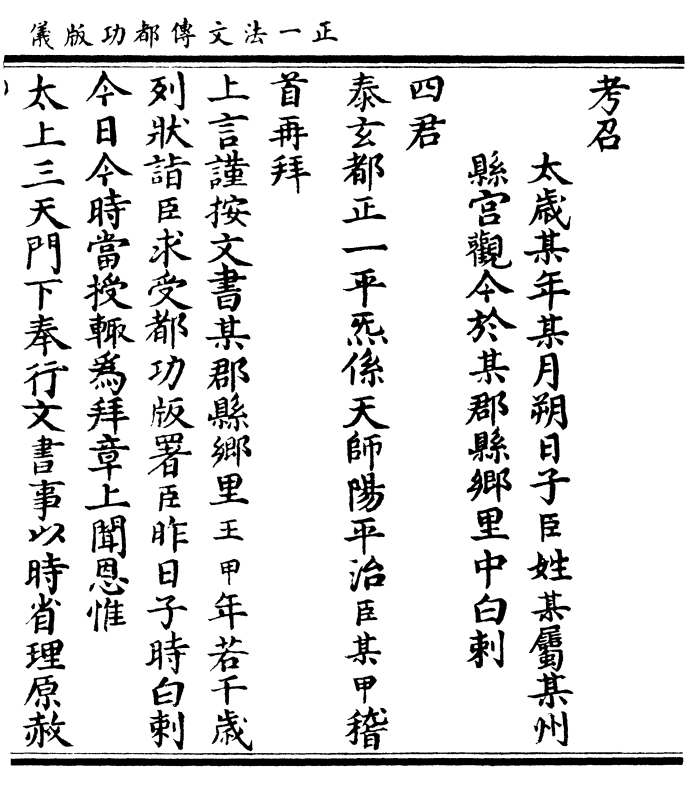 正一法文傳都功版儀
考召
太歲某年某月朔日子臣姓某屬某州
縣宮觀今於某郡縣鄉里中白刺
四君
泰玄都正一平炁係天師陽平治臣某甲稽
首再拜
上言謹按文書某郡縣鄉里王甲年若干歲
列狀詣臣求受都功版署臣昨日子時白刺
今日今時當授輙為拜章上聞恩惟
太上三天門下奉行文書事以時省理原赦